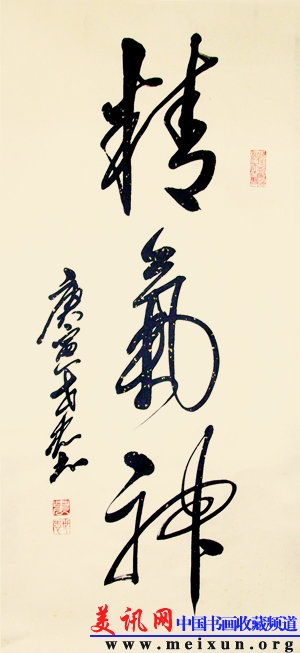 精氣神
庚寅
美讯网 中国书画收藏频道
www.meixun.org